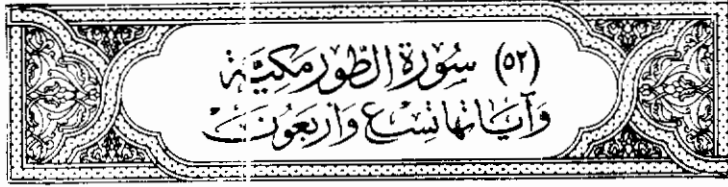 (٥٢) سُورَة الطُّور مَكِيَّة
وَآيَاتهَا تِسْع وَأَرْبَعُونَ